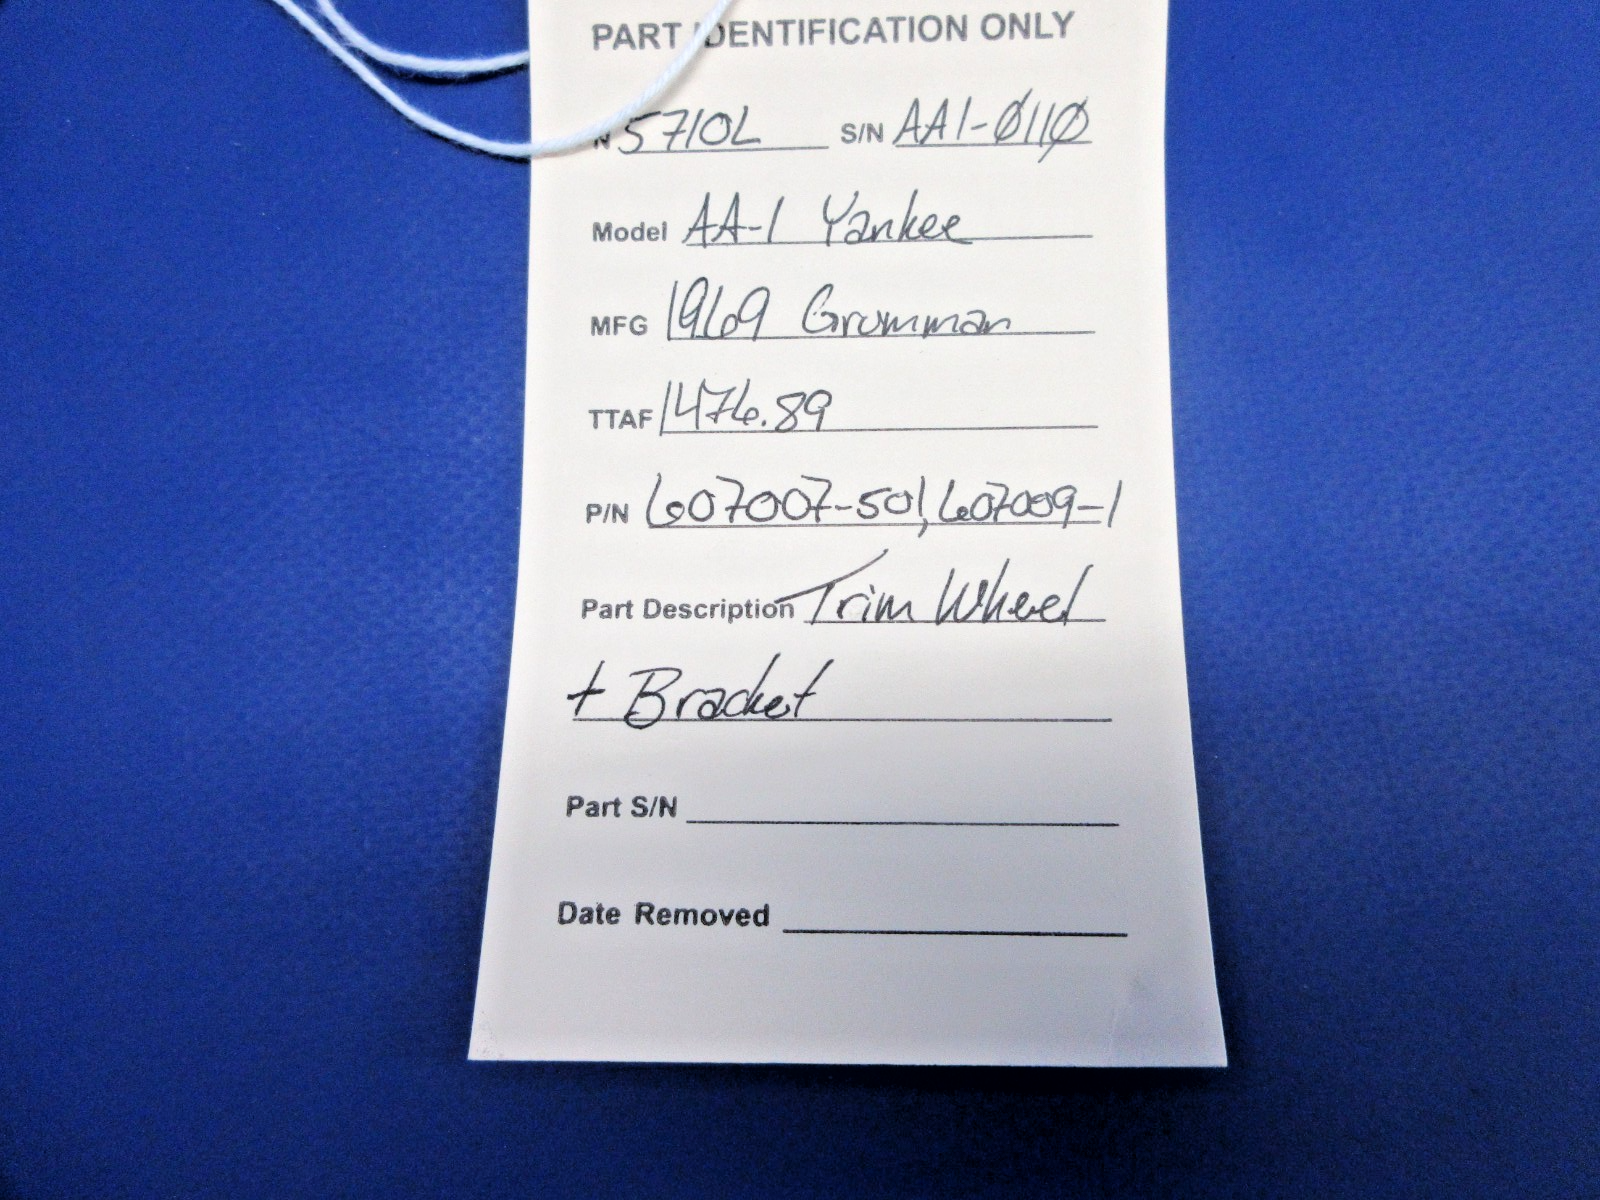 PART IDENTIFICATION ONLY
N 5710L S/N AA1-0110
Model AA-1 Yankee
MFG 1969 Grumman
TTAF 1476.89
P/N 607007-501, 607009-1
Part Description Trim Wheel
+ Bracket
Part S/N
Date Removed